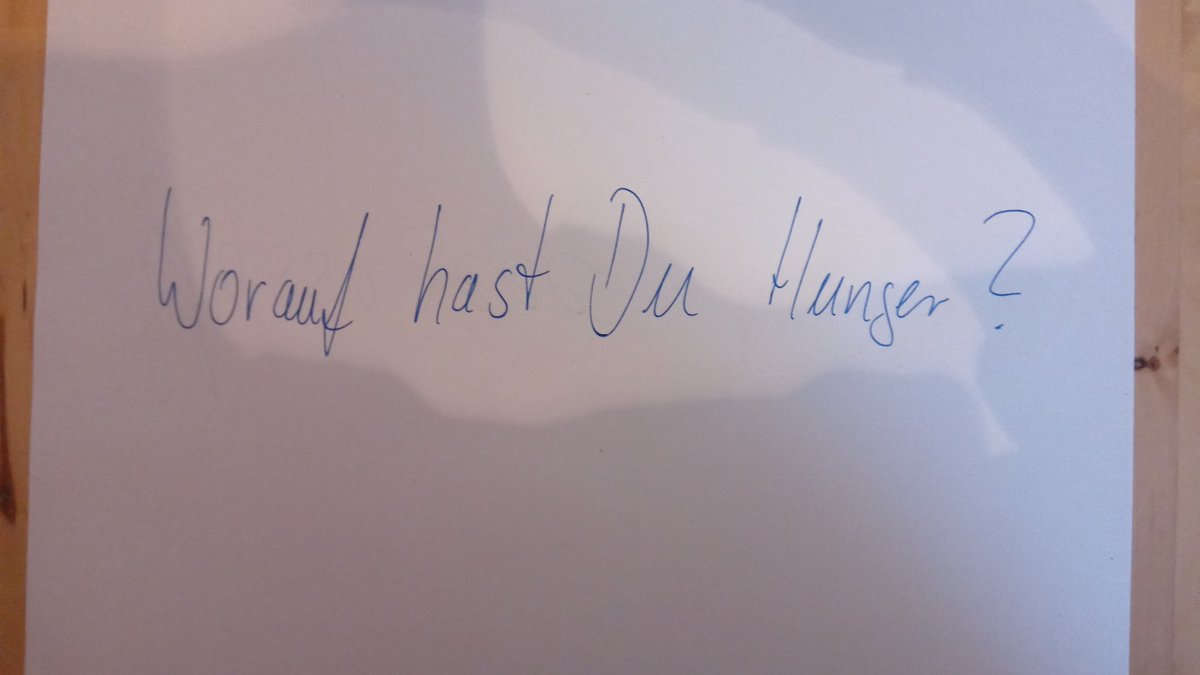 Worauf hast Du Hunger?